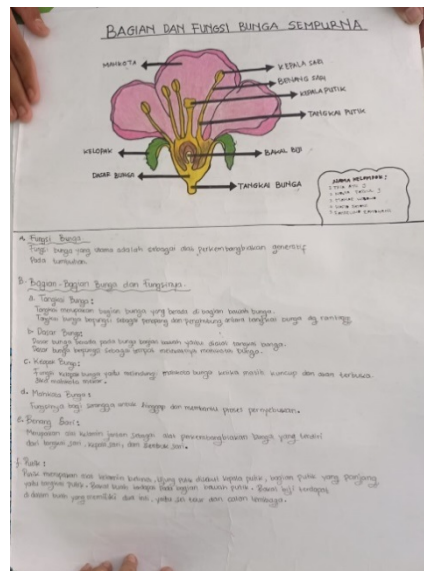 BAGIAN DAN FUNGSI BUNGA SEMPURNA
MAHKOTA
KEPALA SARI
BENANG SARI
KEPALA PUTIK
TANGKAI PUTIK
KELOPAK
BAKAL BIJI
DASAR BUNGA
TANGKAI BUNGA
NAMA KELOMPOK :
A. Fungsi Bunga
Fungsi bunga yang utama adalah sebagai alat perkembangbiakan generatif
Pada tumbuhan.
B. Bagian-Bagian Bunga dan Fungsinya.
a. Tangkai Bunga :
Tangkai merupakan bagian bunga yang berada di bagian bawah bunga.
Tangkai bunga berfungsi sebagai penopang dan penghubung antara tangkai bunga dg ranting.
b. Dasar Bunga :
Dasar bunga berada pada bunga bagian bawah yaitu diatas tangkai bunga.
Dasar bunga berfungsi sebagai tempat melekatnya mahkota bunga.
c. Kelopak Bunga :
Fungsi kelopak bunga yaitu melindungi mahkota bunga ketika masih kuncup dan akan terbuka
jika mahkota mekar.
d. Mahkota Bunga :
Fungsinya bagi serangga untuk hinggap dan membantu proses penyerbukan.
e. Benang Sari :
Merupakan alat kelamin jantan sebagai alat perkembangbiakan bunga yang terdiri
dari tangkai sari, kepala sari, dan serbuk sari.
f. Putik :
Putik merupakan alat kelamin betina, ujung putik disebut kepala putik, bagian putik yang panjang
yaitu tangkai putik. Bakal buah terdapat pada bagian bawah putik. Bakal biji terdapat
didalam buah yang memiliki dua inti, yaitu sel telur dan calon lembaga.